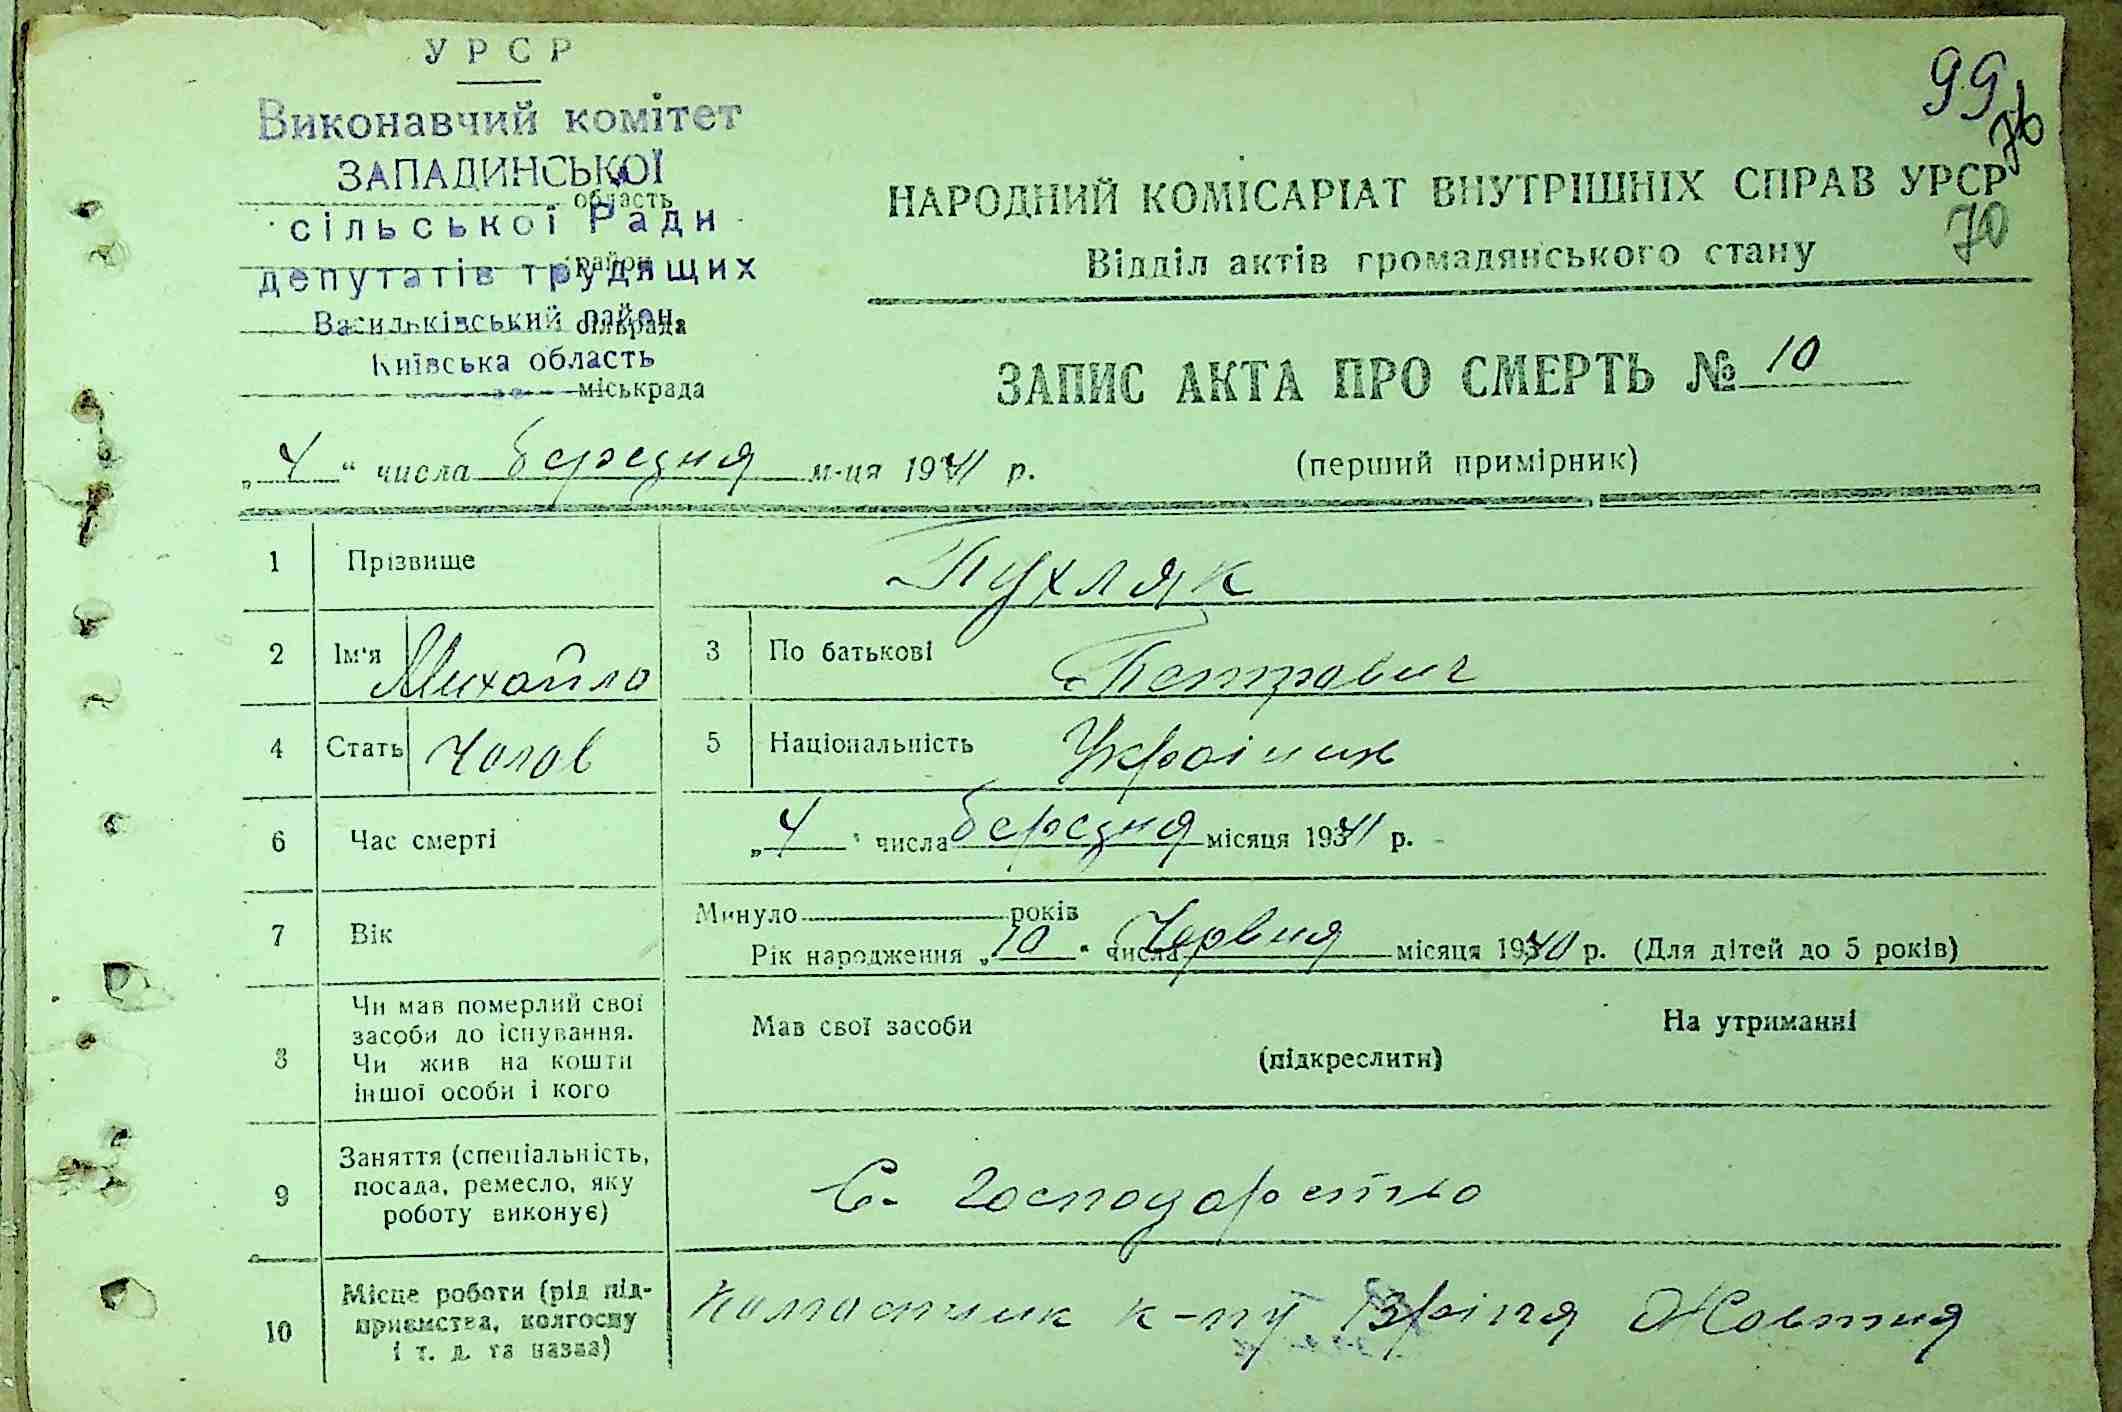 УРСР
Виконавчий комітет
ЗАПАДИНСЬКОЇ
область
сільської Ради
район
депутатів трудящих
Васильківський район
сільрада
Київська область
міськрада
99
76
НАРОДНИЙ КОМІСАРІАТ ВНУТРІШНІХ СПРАВ УРСР
70
Відділ актів громадянського стану
ЗАПИС АКТА ПРО СМЕРТЬ № 10
„4“ числа березня м-ця 1941 р. (перший примірник)
1 Прізвище Пухляк
2 Ім'я Михайло 3 По батькові Петрович
4 Стать Чолов 5 Національність Україник
6 Час смерті „4“ числа березня місяця 1941 р.
Минуло років
7 Вік Рік народження „10“ числа Червня місяця 1940 р. (Для дітей до 5 років)
8 Чи мав померлий свої засоби до існування. Чи жив на кошти іншої особи і кого
Мав свої засоби (підкреслити) На утриманні
9 Заняття (спеціальність, посада, ремесло, яку роботу виконує) С. Господарство
10 Місце роботи (рід підприємства, колгоспу і т. д. та назва) к-пу Жовтня